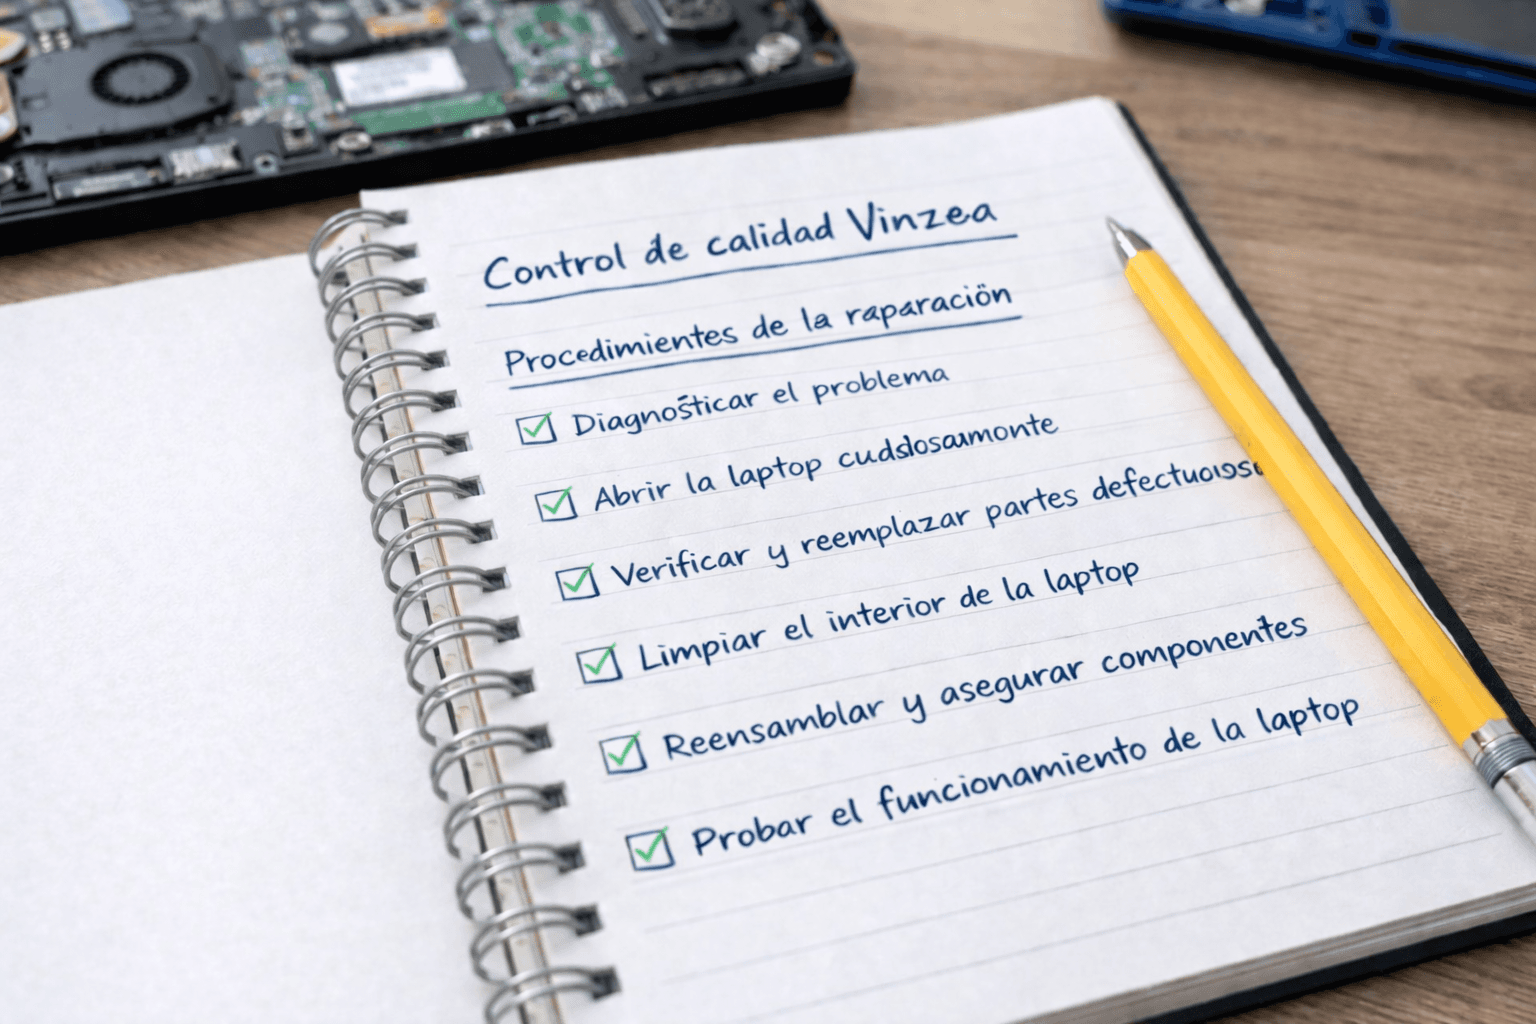 Control de calidad Vinzea
Procedimientes de la raparación
Diagnosticar el problema
Abrir la laptop cudslosaumonte
Verificar y reemplazar partes
Limpiar el interior de la laptop
Reensamblar y asegurar componentes
Probar el funcionamiento de la laptop